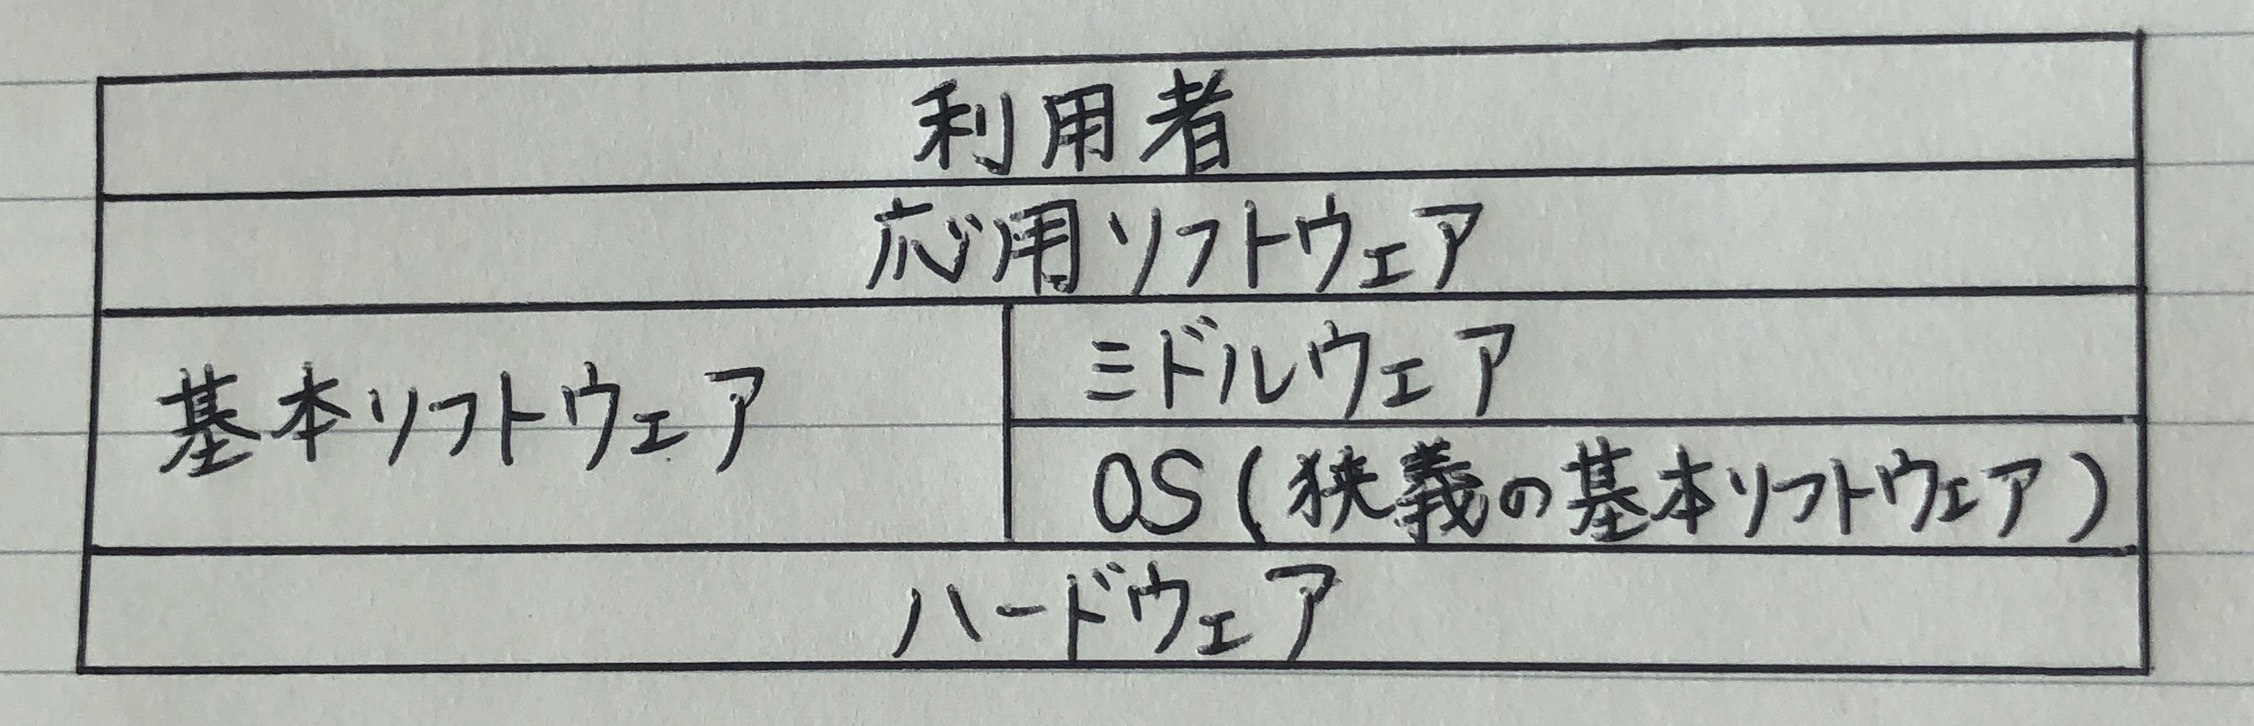 利用者
応用ソフトウェア
基本ソフトウェア
ミドルウェア
OS(狭義の基本ソフトウェア)
ハードウェア